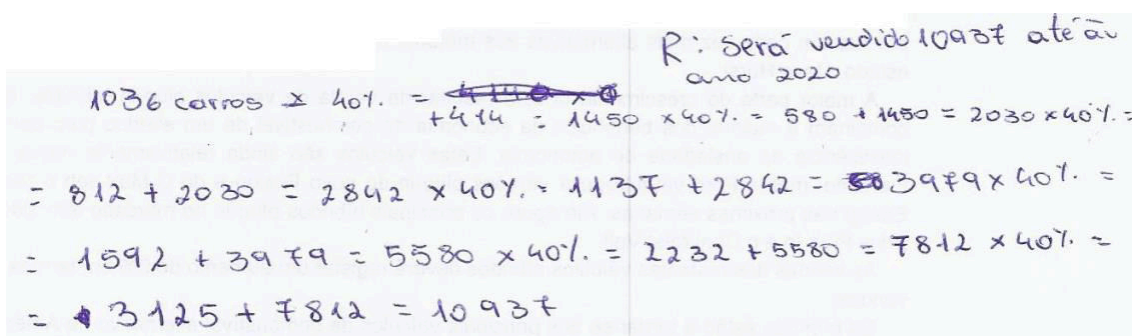 R: Será vendido 10937 até ao
ano 2020
1036 carros x 40%. + 414 = 1450 x 40%. = 580 + 1450 = 2030 x 40%. =
= 812 + 2030 = 2842 x 40%. = 1137 + 2842 = 3979 x 40%. =
= 1592 + 3979 = 5580 x 40%. = 2232 + 5580 = 7812 x 40%. =
= 3125 + 7812 = 10937